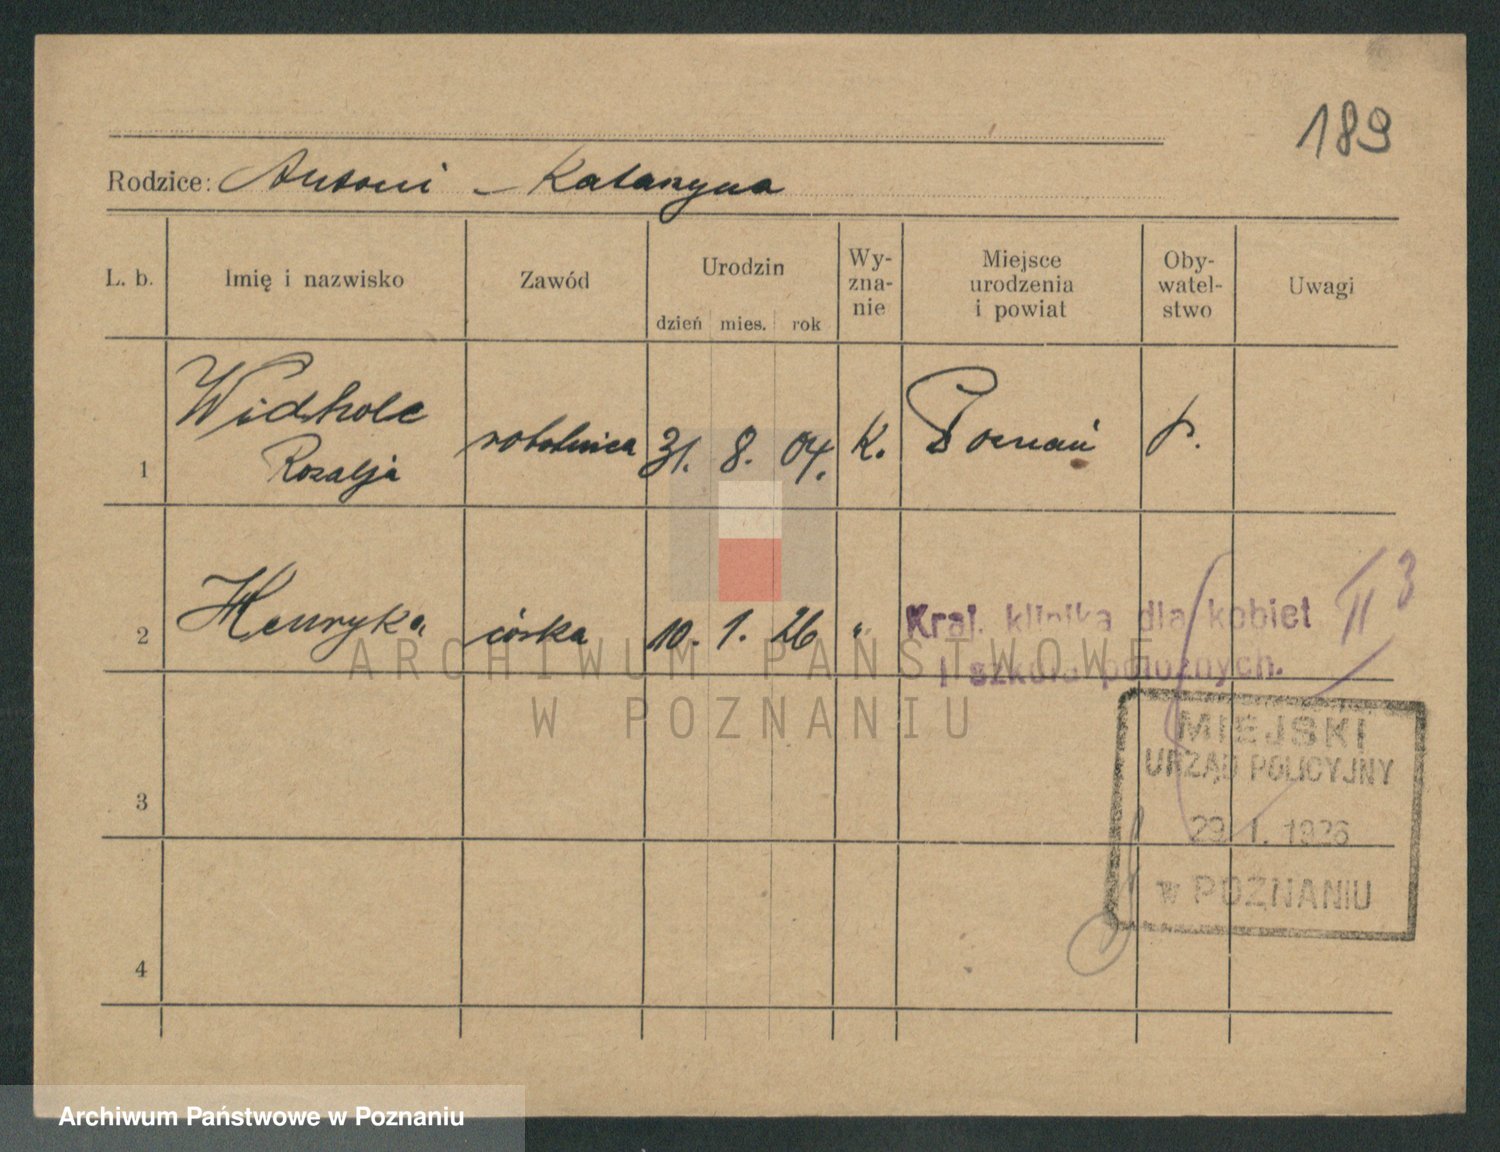 189
Rodzice: Antoni – Katarzyna
L. b.
Imię i nazwisko
Zawód
Urodzin
dzień mies. rok
Wy-
zna-
nie
Miejsce
urodzenia
i powiat
Oby-
watel-
stwo
Uwagi
1
Widholc
Rozalja
robotnica
31. 8. 04.
K.
Poznań
p.
2
Henryka
córka
10. 1. 26
"
Kraj. klinika dla kobiet
i szkoła położnych.
II 3
ARCHIWUM PAŃSTWOWE
W POZNANIU
MIEJSKI
URZĄD POLICYJNY
29. 1. 1926
w POZNANIU
3
4
Archiwum Państwowe w Poznaniu